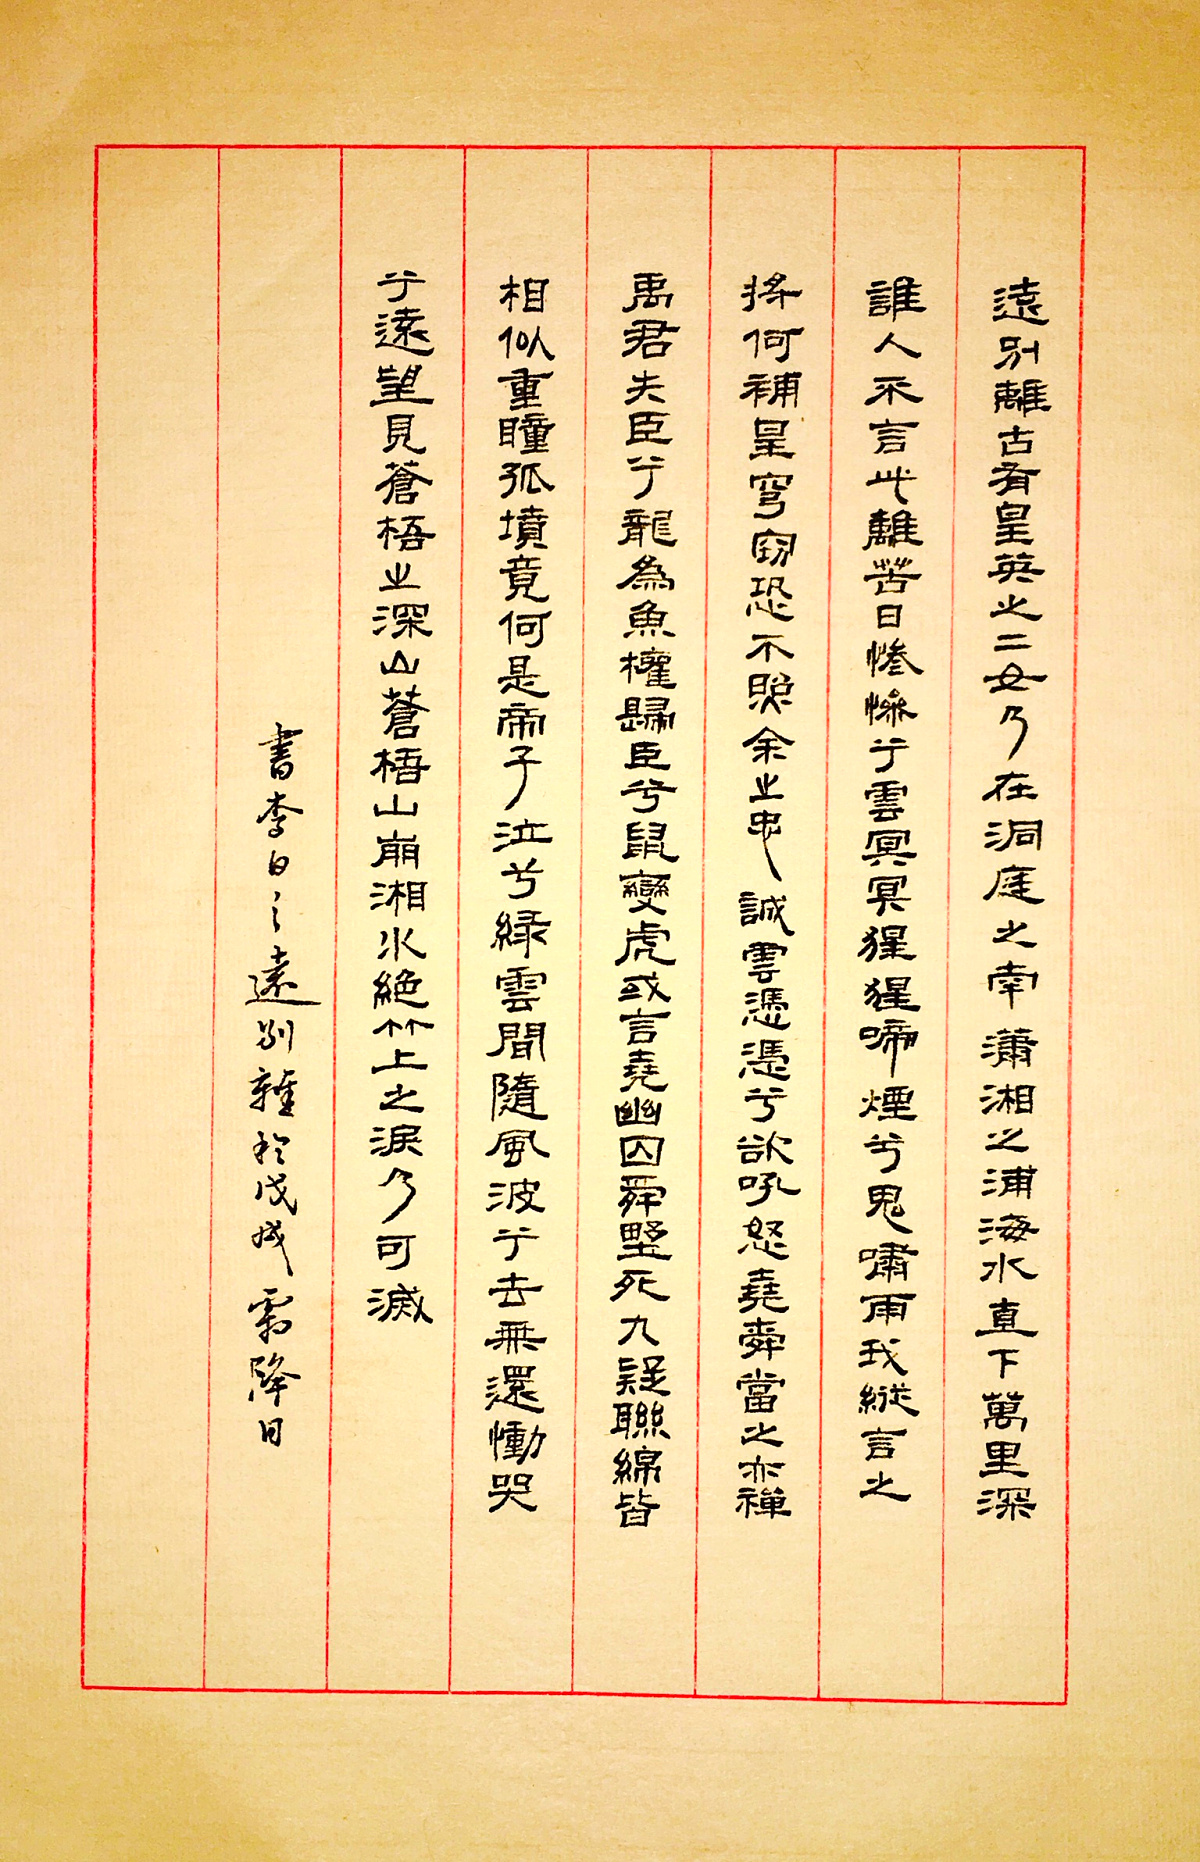 遠別離古有皇英之二女乃在洞庭之南瀟湘之浦海水直下萬里深
誰人不言此離苦日慘慘兮雲冥冥猩猩啼煙兮鬼嘯雨我縱言之
将何補皇穹竊恐不照余之忠誠雲憑憑兮欲吼怒堯舜當之亦禪
禹君失臣兮龍為魚權歸臣兮鼠變虎或言堯幽囚舜野死九疑聯綿皆
相似重瞳孤墳竟何是帝子泣兮綠雲間隨風波兮去無還慟哭
兮遠望見蒼梧之深山蒼梧山崩湘水絕竹上之淚乃可滅
書李白之遠別離於戊戌霜降日